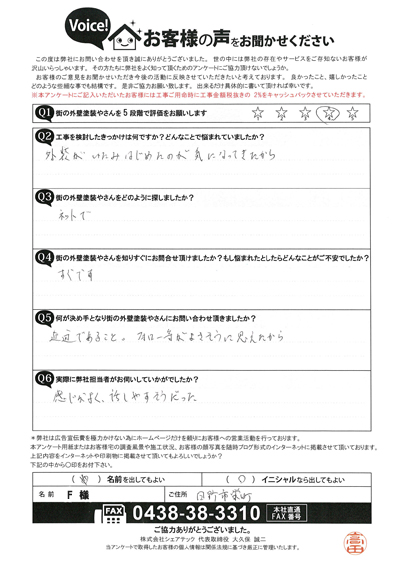 Voice!
お客様の声をお聞かせください
この度は弊社にお問い合わせを頂き誠にありがとうございました。 世の中には弊社の存在やサービスをご存知ないお客様が
沢山いらっしゃいます。 その方たちに弊社をよく知って頂くためのアンケートにご協力頂けないでしょうか。
お客様のご意見をお聞かせいただき今後の活動に反映させていただきたいと考えております。 良かったこと、嬉しかったこと
どのような些細な事でも結構です。 是非ご協力お願い致します。 出来るだけ具体的に書いて頂ければ幸いです。
※本アンケートにご記入いただいたお客様には工事ご用命時に工事金額税抜きの 2%をキャッシュバックさせていただきます。
Q1 街の外壁塗装やさんを5段階で評価をお願いします ☆ ☆ ☆ ☆ ☆
Q2 工事を検討したきっかけは何ですか？どんなことで悩まれていましたか？
外装がいたみはじめたのが気になってきたから
Q3 街の外壁塗装やさんをどのように探しましたか？
ネットで
Q4 街の外壁塗装やさんを知りすぐにお問合せ頂けましたか？もし悩まれたとしたらどんなことがご不安でしたか？
すぐです
Q5 何が決め手となり街の外壁塗装やさんにお問い合わせ頂きましたか？
近辺であること。フォロー等がよさそうに思えたから
Q6 実際に弊社担当者がお伺いしていかがでしたか？
感じがよく、話しやすそうだった
＊弊社は広告宣伝費を極力かけない為にホームページだけを頼りにお客様への営業活動を行っております。
本アンケート用紙またはお客様宅の調査風景や施工状況、お客様の顔写真を随時ブログ形式のインターネットに掲載させて頂いております。
上記内容をインターネットや印刷物に掲載させて頂いてもよろしいでしょうか？
下記の中から〇印をお付下さい。
( ) 名前を出してもよい ( 〇 ) イニシャルなら出してもよい
名 前 F 様 ご住所 日野市栄町
FAX 0438-38-3310 本社直通 FAX 番号
ご協力ありがとうございました。
株式会社シェアテック 代表取締役 大久保 誠二
当アンケートで取得したお客様の個人情報は関係法規に基づき厳正に管理いたします。